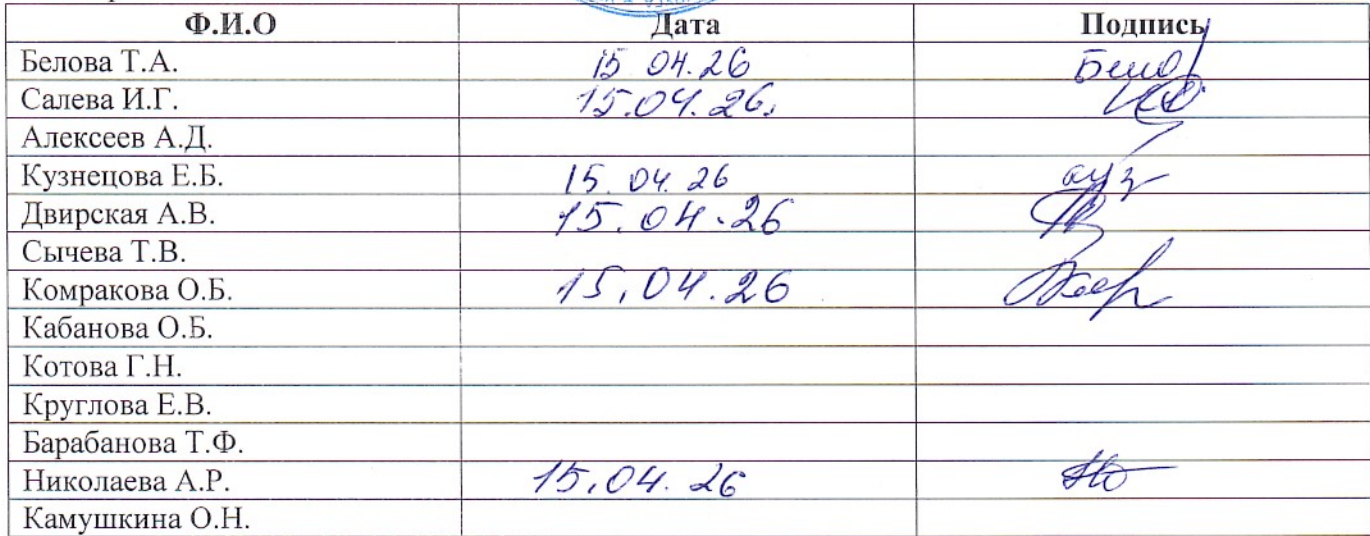 Ф.И.О Дата Подпись
Белова Т.А. 15 04.26
Салева И.Г. 15.04.26.
Алексеев А.Д.
Кузнецова Е.Б. 15.04.26
Двирская А.В. 15.04.26
Сычева Т.В.
Комракова О.Б. 15.04.26
Кабанова О.Б.
Котова Г.Н.
Круглова Е.В.
Барабанова Т.Ф.
Николаева А.Р. 15.04.26
Камушкина О.Н.